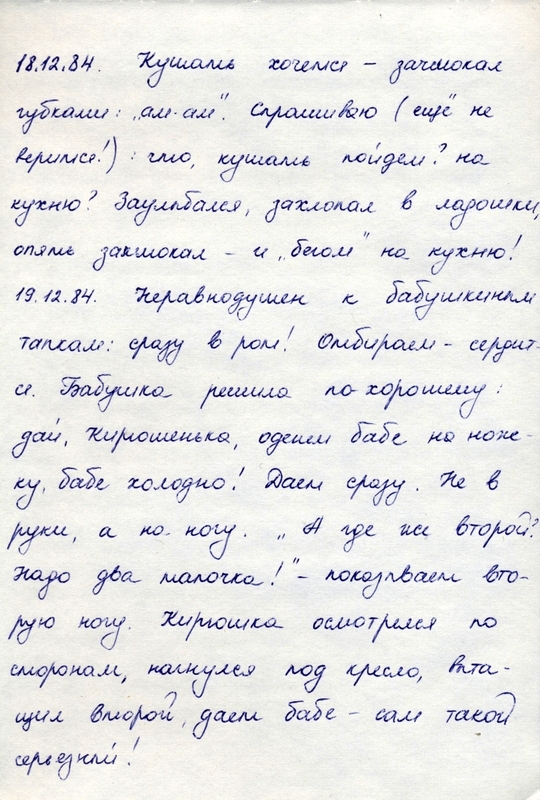 18.12.84. Кушать хочется – зачмокал
губками: „ам-ам". Спрашиваю (ещё не
верится!): что, кушать пойдем? на
кухню? Заулыбался, захлопал в ладошки,
опять зачмокал – и „бегом" на кухню!
19.12.84. Неравнодушен к бабушкиным
тапкам: сразу в рот! Отбираем – сердит-
ся. Бабушка решила по-хорошему:
дай, Кирюшенька, оденем бабе на нож-
ку, бабе холодно! Дает сразу. Не в
руки, а на ногу. „А где же второй?
Надо два тапочка!" – показывает вто-
рую ногу. Кирюшка осмотрелся по
сторонам, нагнулся под кресло, выта-
щил второй, дает бабе – сам такой
серьезный!